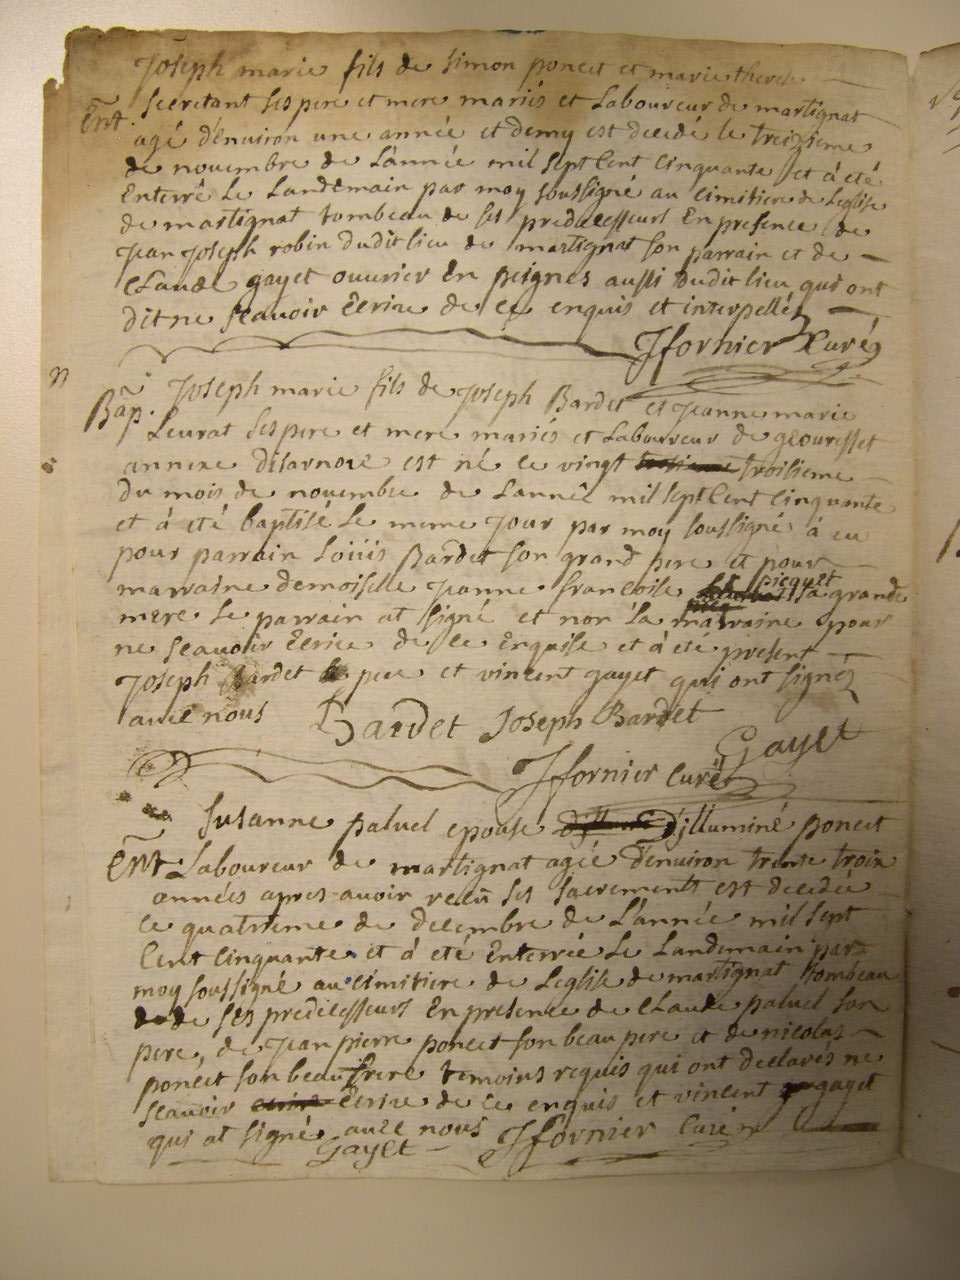 Joseph marie fils de simon poncet et marie therese
Ent. Secretant ses pere et mere mariés et Laboureur de martignat
agé d'Enuiron une année et demy est decedé le treizieme
de novembre de L'année mil sept Cent Cinquante et à eté
Enterré Le Landemain par moy soussigné au Cimitiere de Leglise
de martignat tombeau de ses predecesseurs En presence de
Jean Joseph robin dudit lieu de martignat son parrain et de
Claude gayet ouurier En peignes aussi dudit lieu qui ont
dit ne scauoir Ecrire de ce enquis et interpellés
Jfornier Curé
Bap. Joseph marie fils de Joseph Bardet et Jeanne marie
Leurat ses pere et mere mariés et Laboureur de geouresset
annexe disarnore est né le vingt troisieme
du mois de novembre de Lannée mil sept Cent Cinquante
et à eté baptisé Le meme Jour par moy soussigné à eu
pour parrain Loüis Bardet son grand pere et pour
marraine demoiselle Jeanne francoise picquet sa grande
mere Le parrain at signé et non la marraine pour
ne scauoir Ecrire de ce Enquise et à été present
Joseph Bardet le pere et vincent gayet qui ont signéz
auec nous Bardet Joseph Bardet
Gayet
Jfornier Curé
Susanne paluel epouse D'jlluminé poncet
Ent. Laboureur de martignat agée d'enuiron trente trois
années apres auoir receu ses sacrements est decedée
le quatrieme de decembre de L'année mil sept
Cent Cinquante et à eté Enterrée Le Landemain par
moy soussigné au Cimitiere de Leglise de martignat tombeau
de ses predecesseurs En presence de Claude paluel son
pere, de Jean pierre poncet son beau pere et de nicolas
poncet son beau frere temoins requis qui ont declarés ne
scauoir Ecrire de ce enquis et vincent gayet
qui at signé auec nous Jfornier Curé
Gayet